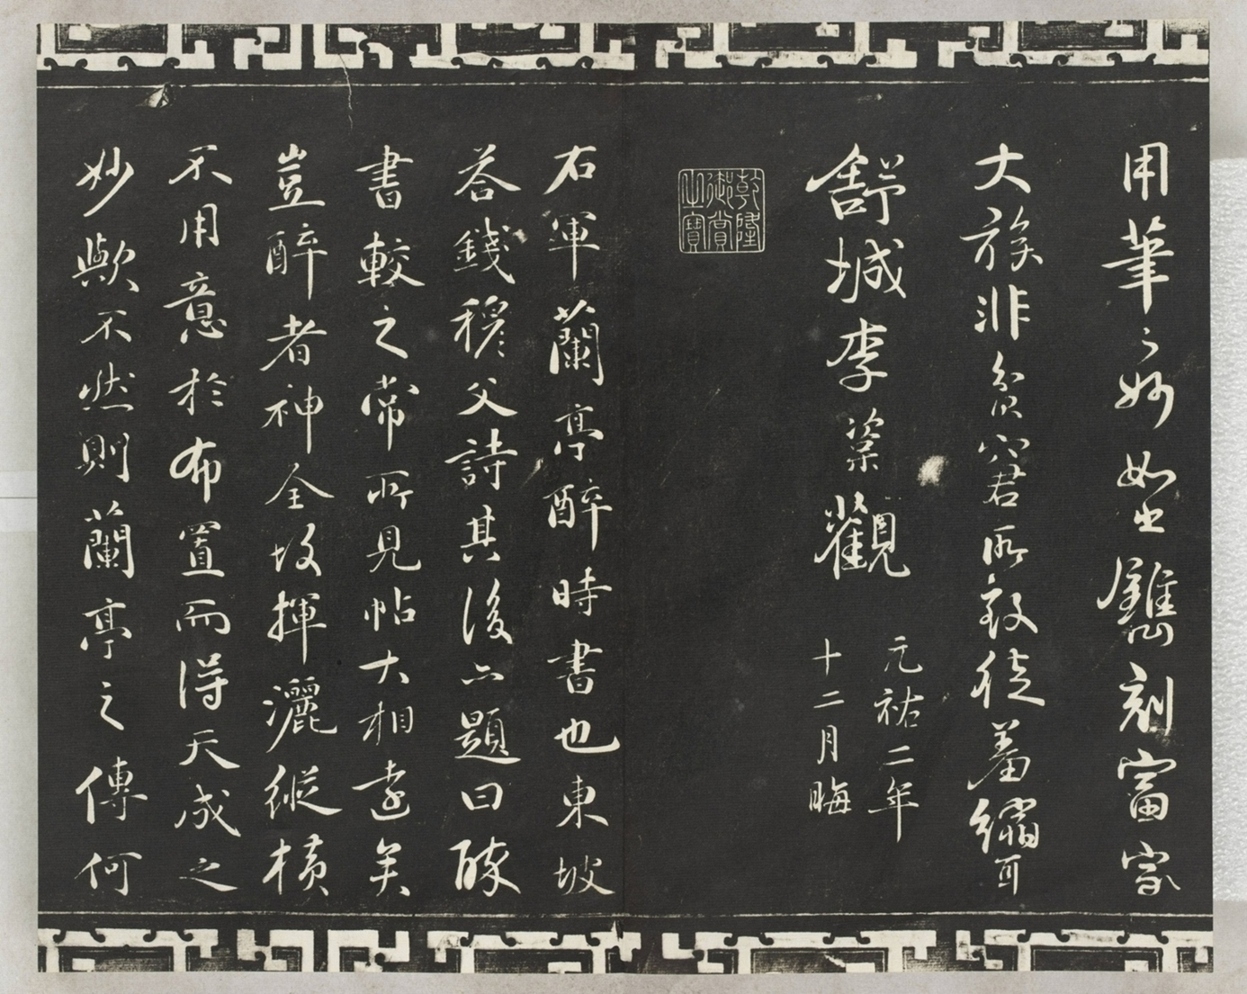 用筆之妙如也鐫刻富家
大族非貧窘所致徒羞縮耳
舒城李楶觀
元祐二年
十二月晦
乾隆
御賞
之寶
右軍蘭亭醉時書也東坡
荅錢穆父詩其後亦題曰醉
書較之常所見帖大相遠矣
豈醉者神全故揮灑縱橫
不用意於布置而得天成之
妙歟不然則蘭亭之傳何